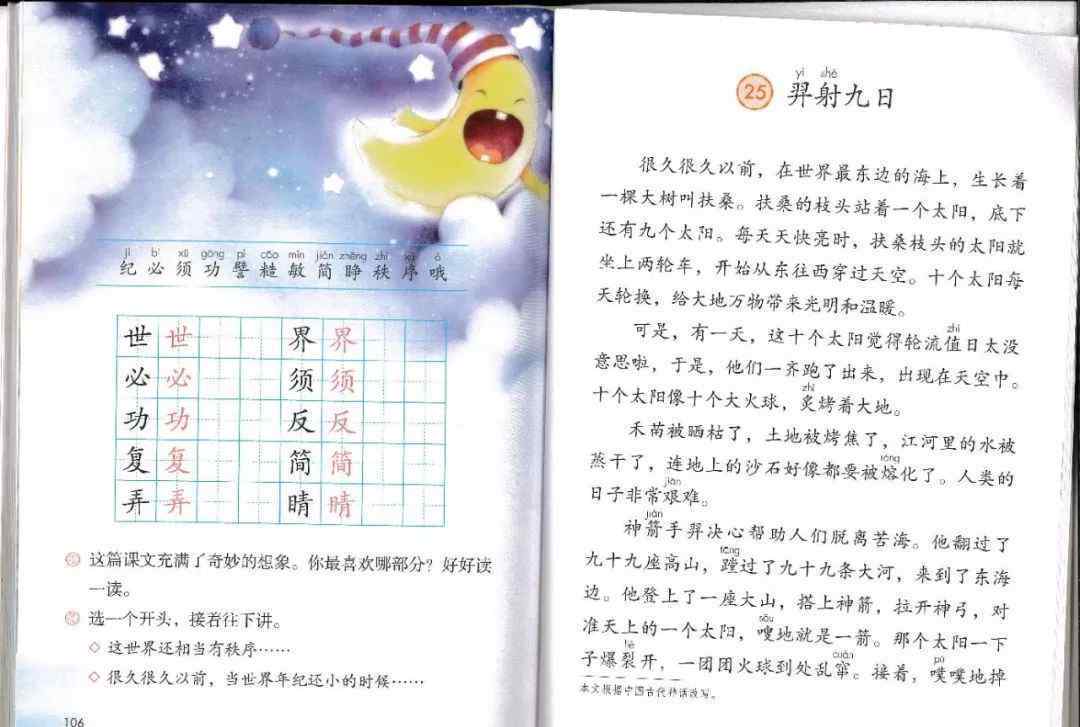 jì bì xū gōng pì cāo mǐn jiǎn zhēng zhì xù ó
纪必须功譬糙敏简睁秩序哦
世世 界界
必必 须须
功功 反反
复复 简简
弄弄 睛睛
这篇课文充满了奇妙的想象。你最喜欢哪部分？好好读
一读。
选一个开头，接着往下讲。
◇ 这世界还相当有秩序……
◇ 很久很久以前，当世界年纪还小的时候……
106
yì shè
25 羿射九日
很久很久以前，在世界最东边的海上，生长着
一棵大树叫扶桑。扶桑的枝头站着一个太阳，底下
还有九个太阳。每天天快亮时，扶桑枝头的太阳就
坐上两轮车，开始从东往西穿过天空。十个太阳每
天轮换，给大地万物带来光明和温暖。
zhí
可是，有一天，这十个太阳觉得轮流值日太没
意思啦，于是，他们一齐跑了出来，出现在天空中。
zhì
十个太阳像十个大火球，炙烤着大地。
禾苗被晒枯了，土地被烤焦了，江河里的水被
róng
蒸干了，连地上的沙石好像都要被熔化了。人类的
jiān
日子非常艰难。
jiàn
神箭手羿决心帮助人们脱离苦海。他翻过了
tāng
九十九座高山，蹚过了九十九条大河，来到了东海
边。他登上了一座大山，搭上神箭，拉开神弓，对
sōu
准天上的一个太阳，嗖地就是一箭。那个太阳一下
liè cuàn pū
子爆裂开，一团团火球到处乱窜。接着，噗噗地掉
本文根据中国古代神话改写。